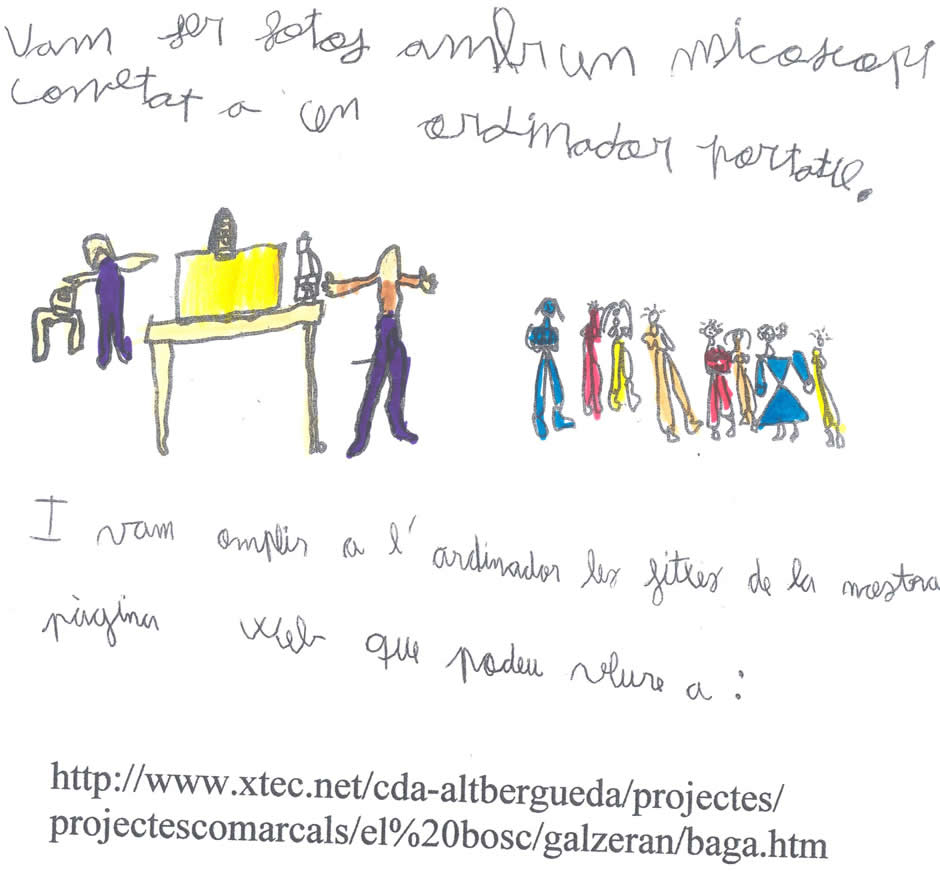 Vam fer fotos amb un micoscopi
conectat a un ordinador portatil.
I vam omplir a l'ardinador les fitxes de la nostra
pàgina web que podeu veure a :
http://www.xtec.net/cda-altbergueda/projectes/
projectescomarcals/el%20bosc/galzeran/baga.htm